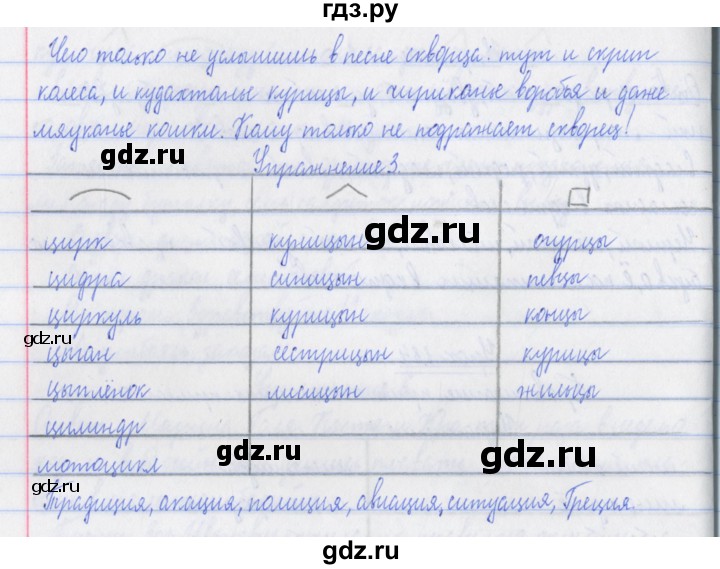 гдз.ру
Чего только не услышишь в песне скворца: тут и скрип
колеса, и кудахтанье курицы, и чириканье воробья и даже
мяуканье кошки. Кому только не подражает скворец!
gdz.ru
Упражнение 3.
цирк курицын огурцы
gdz.ru
цифра синицын певцы
циркуль курицын концы
gdz.ru
цыган сестрицын курицы
цыплёнок лисицын жильцы
цилиндр
gdz.ru gdz.ru
мотоцикл
gdz.ru
Традиция, акация, полиция, авиация, ситуация, Греция.
gdz.ru